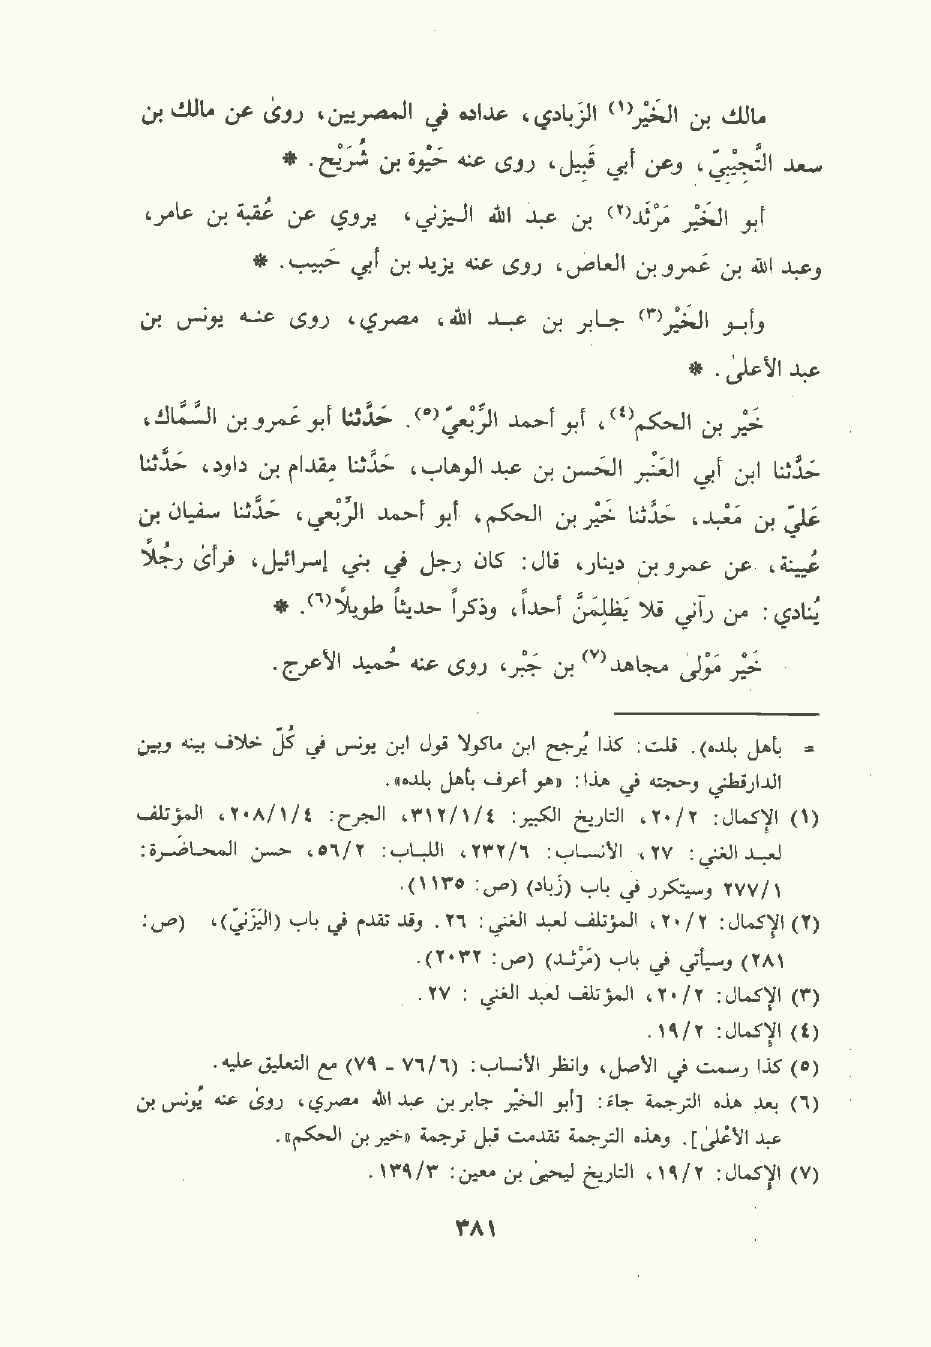 مالك بن الخَيْر(١) الزَبادي، عداده في المصريين، روىٰ عن مالك بن
سعد التُّجِيْبِيّ، وعن أبي قَبِيل، روى عنه حَيْوة بن شُرَيْح. *
أبو الخَيْر مَرْثَد(٢) بن عبد الله اليزني، يروي عن عُقبة بن عامر،
وعبد الله بن عَمرو بن العاص، روى عنه يزيد بن أبي حَبيب. *
وأبو الخَيْر(٣) جابر بن عبد الله، مصري، روى عنه يونس بن
عبد الأعلىٰ. *
خَيْر بن الحكم(٤)، أبو أحمد الرِّبْعيّ(٥). حَدَّثنا أبو عَمرو بن السَّمَّاك،
حَدَّثنا ابن أبي العَنْبر الحَسن بن عبد الوهاب، حَدَّثنا مِقدام بن داود، حَدَّثنا
عَليّ بن مَعْبد، حَدَّثنا خَيْر بن الحكم، أبو أحمد الرِّبْعي، حَدَّثنا سفيان بن
عُيينة، عن عمرو بن دينار، قال: كان رجل في بني إسرائيل، فرأىٰ رجُلاً
يُنادي: من رآني فلا يَظلِمَنَّ أحداً، وذكراً حديثاً طويلاً(٦). *
خَيْر مَوْلىٰ مجاهد(٧) بن جَبْر، روى عنه حُميد الأعرج.
= بأهل بلده). قلت: كذا يُرجح ابن ماكولا قول ابن يونس في كُلّ خلاف بينه وبين
الدارقطني وحجته في هذا: «هو أعرف بأهل بلده».
(١) الإكمال: ٢/ ٢٠، التاريخ الكبير: ٤/ ١/ ٣١٢، الجرح: ٤/ ١/ ٢٠٨، المؤتلف
لعبد الغني: ٢٧، الأنساب: ٦/ ٢٣٢، اللباب: ٢/ ٥٦، حسن المحاضرة:
١/ ٢٧٧ وسيتكرر في باب (زَباد) (ص: ١١٣٥).
(٢) الإكمال: ٢/ ٢٠، المؤتلف لعبد الغني: ٢٦. وقد تقدم في باب (اليَزَنيّ)، (ص:
٢٨١) وسيأتي في باب (مَرْثَد) (ص: ٢٠٣٢).
(٣) الإكمال: ٢/ ٢٠، المؤتلف لعبد الغني : ٢٧.
(٤) الإكمال: ٢/ ١٩.
(٥) كذا رسمت في الأصل، وانظر الأنساب: (٦/ ٧٦ - ٧٩) مع التعليق عليه.
(٦) بعد هذه الترجمة جاءَ: [أبو الخَيْر جابر بن عبد الله مصري، روىٰ عنه يُونس بن
عبد الأَعْلىٰ]. وهذه الترجمة تقدمت قبل ترجمة «خير بن الحكم».
(٧) الإكمال: ٢/ ١٩، التاريخ ليحيىٰ بن معين: ٣/ ١٣٩.
٣٨١